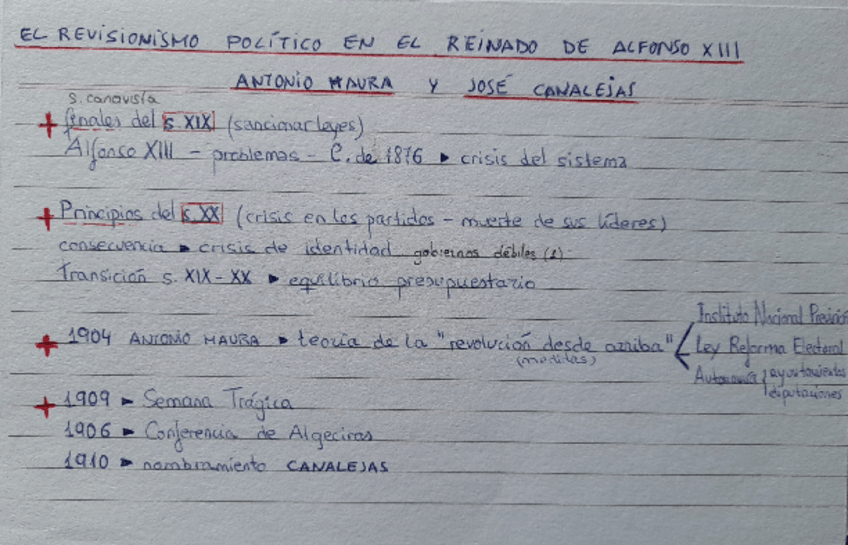 EL REVISIONISMO POLÍTICO EN EL REINADO DE ALFONSO XIII
ANTONIO MAURA Y JOSÉ CANALEJAS
s. canovista
+ finales del s. XIX (sancionar leyes)
Alfonso XIII - problemas - C. de 1876 ▸ crisis del sistema
+ Principios del s. XX (crisis en los partidos - muerte de sus líderes)
consecuencia ▸ crisis de identidad gobiernos débiles (1)
Transición s. XIX - XX ▸ equilibrio presupuestario
+ 1904 ANTONIO MAURA ▸ teoría de la "revolución desde arriba"
(medidas)
Instituto Nacional Previsión
Ley Reforma Electoral
Autonomía ayuntamientos
diputaciones
+ 1909 ▸ Semana Trágica
1906 ▸ Conferencia de Algeciras
1910 ▸ nombramiento CANALEJAS